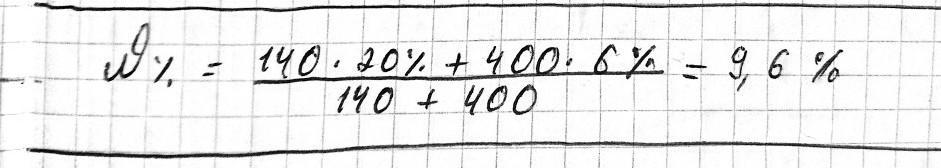 ω% = (140 · 20% + 400 · 6%) / (140 + 400) = 9,6 %